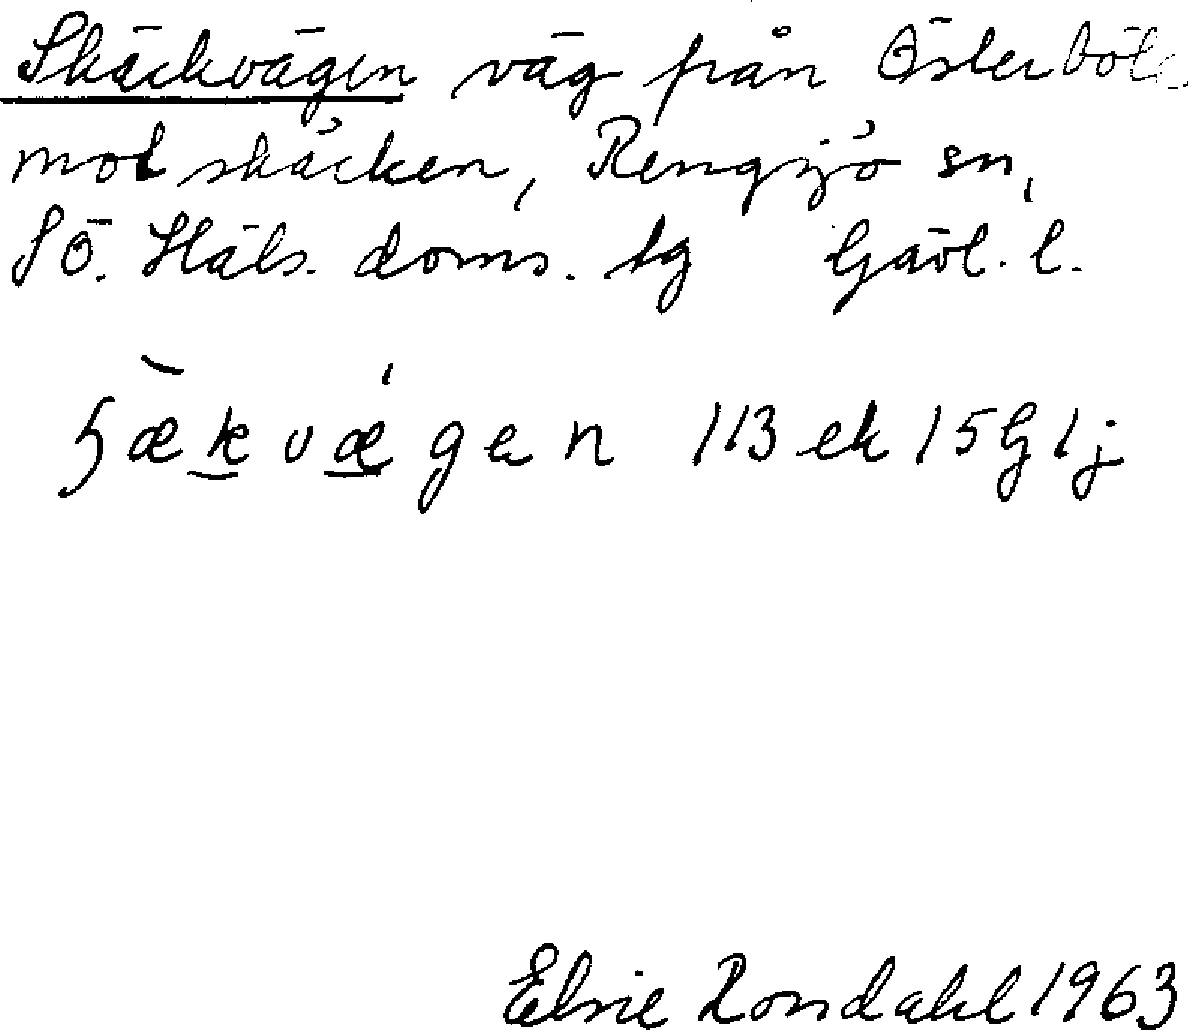 Skäckvägen väg från Österböle
mot skäcken, Rengsjö sn,
S Ö. Häls. doms. tg Gävl. l.
ɧækvægen 113 ek 15 G 1 j
Elsie Rondahl 1963